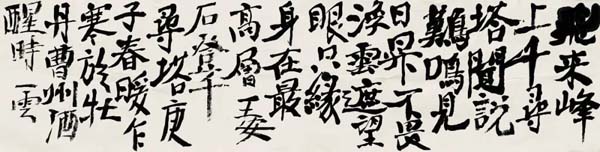 飛来峰
上千尋
塔聞説
鷄鳴見
日昇不畏
浮雲遮望
眼只緣
身在最
高層 王安
石登千
尋塔庚
子春暖乍
寒於牡
丹曹州酒
醒時 一雲